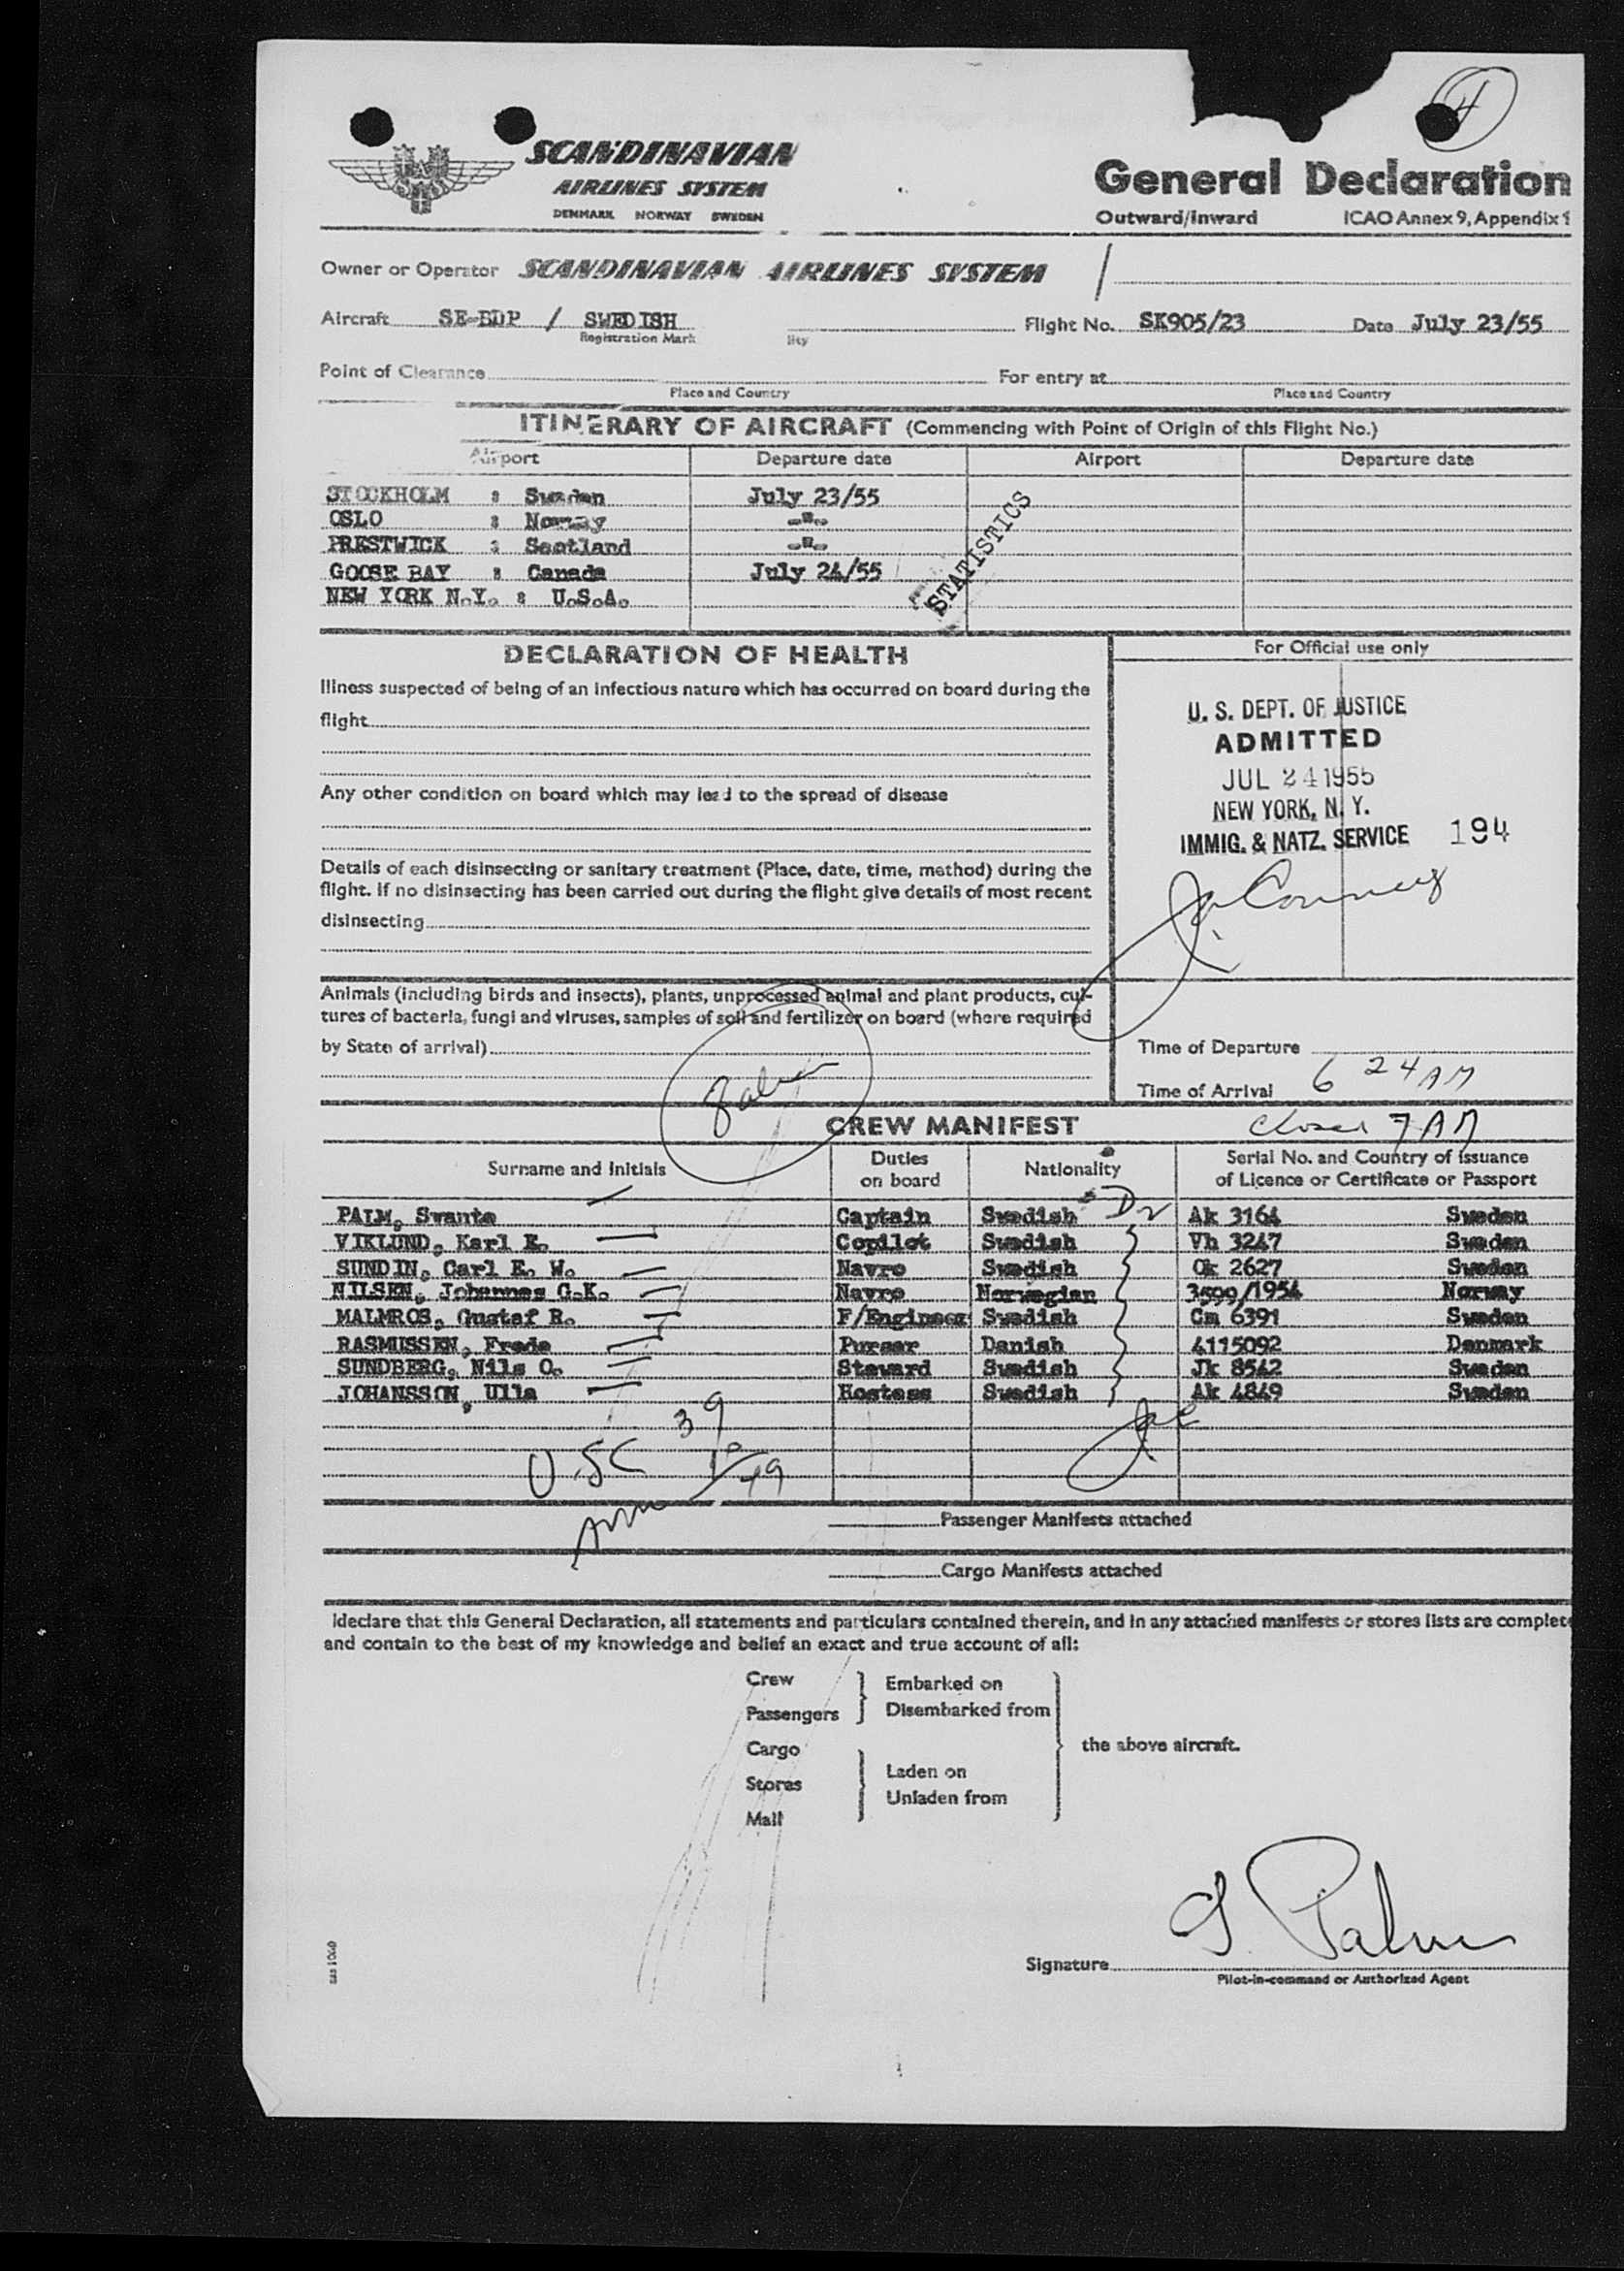 4
SCANDINAVIAN
AIRLINES SYSTEM
DENMARK NORWAY SWEDEN
General Declaration
Outward/Inward ICAO Annex 9, Appendix 1
Owner or Operator SCANDINAVIAN AIRLINES SYSTEM /
Aircraft SE-BDP / SWEDISH Flight No. SK905/23 Date July 23/55
Registration Mark lity
Point of Clearance For entry at
Place and Country Place and Country
ITINERARY OF AIRCRAFT (Commencing with Point of Origin of this Flight No.)
Airport Departure date Airport Departure date
STOCKHOLM : Sweden July 23/55
OSLO : Norway -"-
PRESTWICK : Scotland -"-
GOOSE BAY : Canada July 24/55
NEW YORK N.Y. : U.S.A.
STATISTICS
DECLARATION OF HEALTH
Illness suspected of being of an infectious nature which has occurred on board during the
flight
Any other condition on board which may lead to the spread of disease
Details of each disinsecting or sanitary treatment (Place, date, time, method) during the
flight. If no disinsecting has been carried out during the flight give details of most recent
disinsecting
For Official use only
U. S. DEPT. OF JUSTICE
ADMITTED
JUL 24 1955
NEW YORK, N. Y.
IMMIG. & NATZ. SERVICE 194
Animals (including birds and insects), plants, unprocessed animal and plant products, cul-
tures of bacteria, fungi and viruses, samples of soil and fertilizer on board (where required
by State of arrival)
Time of Departure
Time of Arrival 6 24 AM
CREW MANIFEST
closed 7 AM
Surname and Initials Duties on board Nationality Serial No. and Country of Issuance
of Licence or Certificate or Passport
PALM, Swante Captain Swedish Ak 3164 Sweden
VIKLUND, Karl E. Copilot Swedish Vh 3247 Sweden
SUNDIN, Carl E. W. Navro Swedish Ok 2627 Sweden
NILSEN, Johannes G.K. Navro Norwegian 3599/1954 Norway
MALMROS, Gustaf R. F/Engineer Swedish Cm 6391 Sweden
RASMUSSEN, Frede Purser Danish 4115092 Denmark
SUNDBERG, Nils O. Steward Swedish Jk 8542 Sweden
JOHANSSON, Ulla Hostess Swedish Ak 4849 Sweden
USC 39
10
49
Passenger Manifests attached
Cargo Manifests attached
I declare that this General Declaration, all statements and particulars contained therein, and in any attached manifests or stores lists are complete
and contain to the best of my knowledge and belief an exact and true account of all:
Crew Embarked on
Passengers Disembarked from
Cargo the above aircraft.
Stores Laden on
Mail Unladen from
S. Palm
Signature
Pilot-in-command or Authorized Agent
SAS 1040